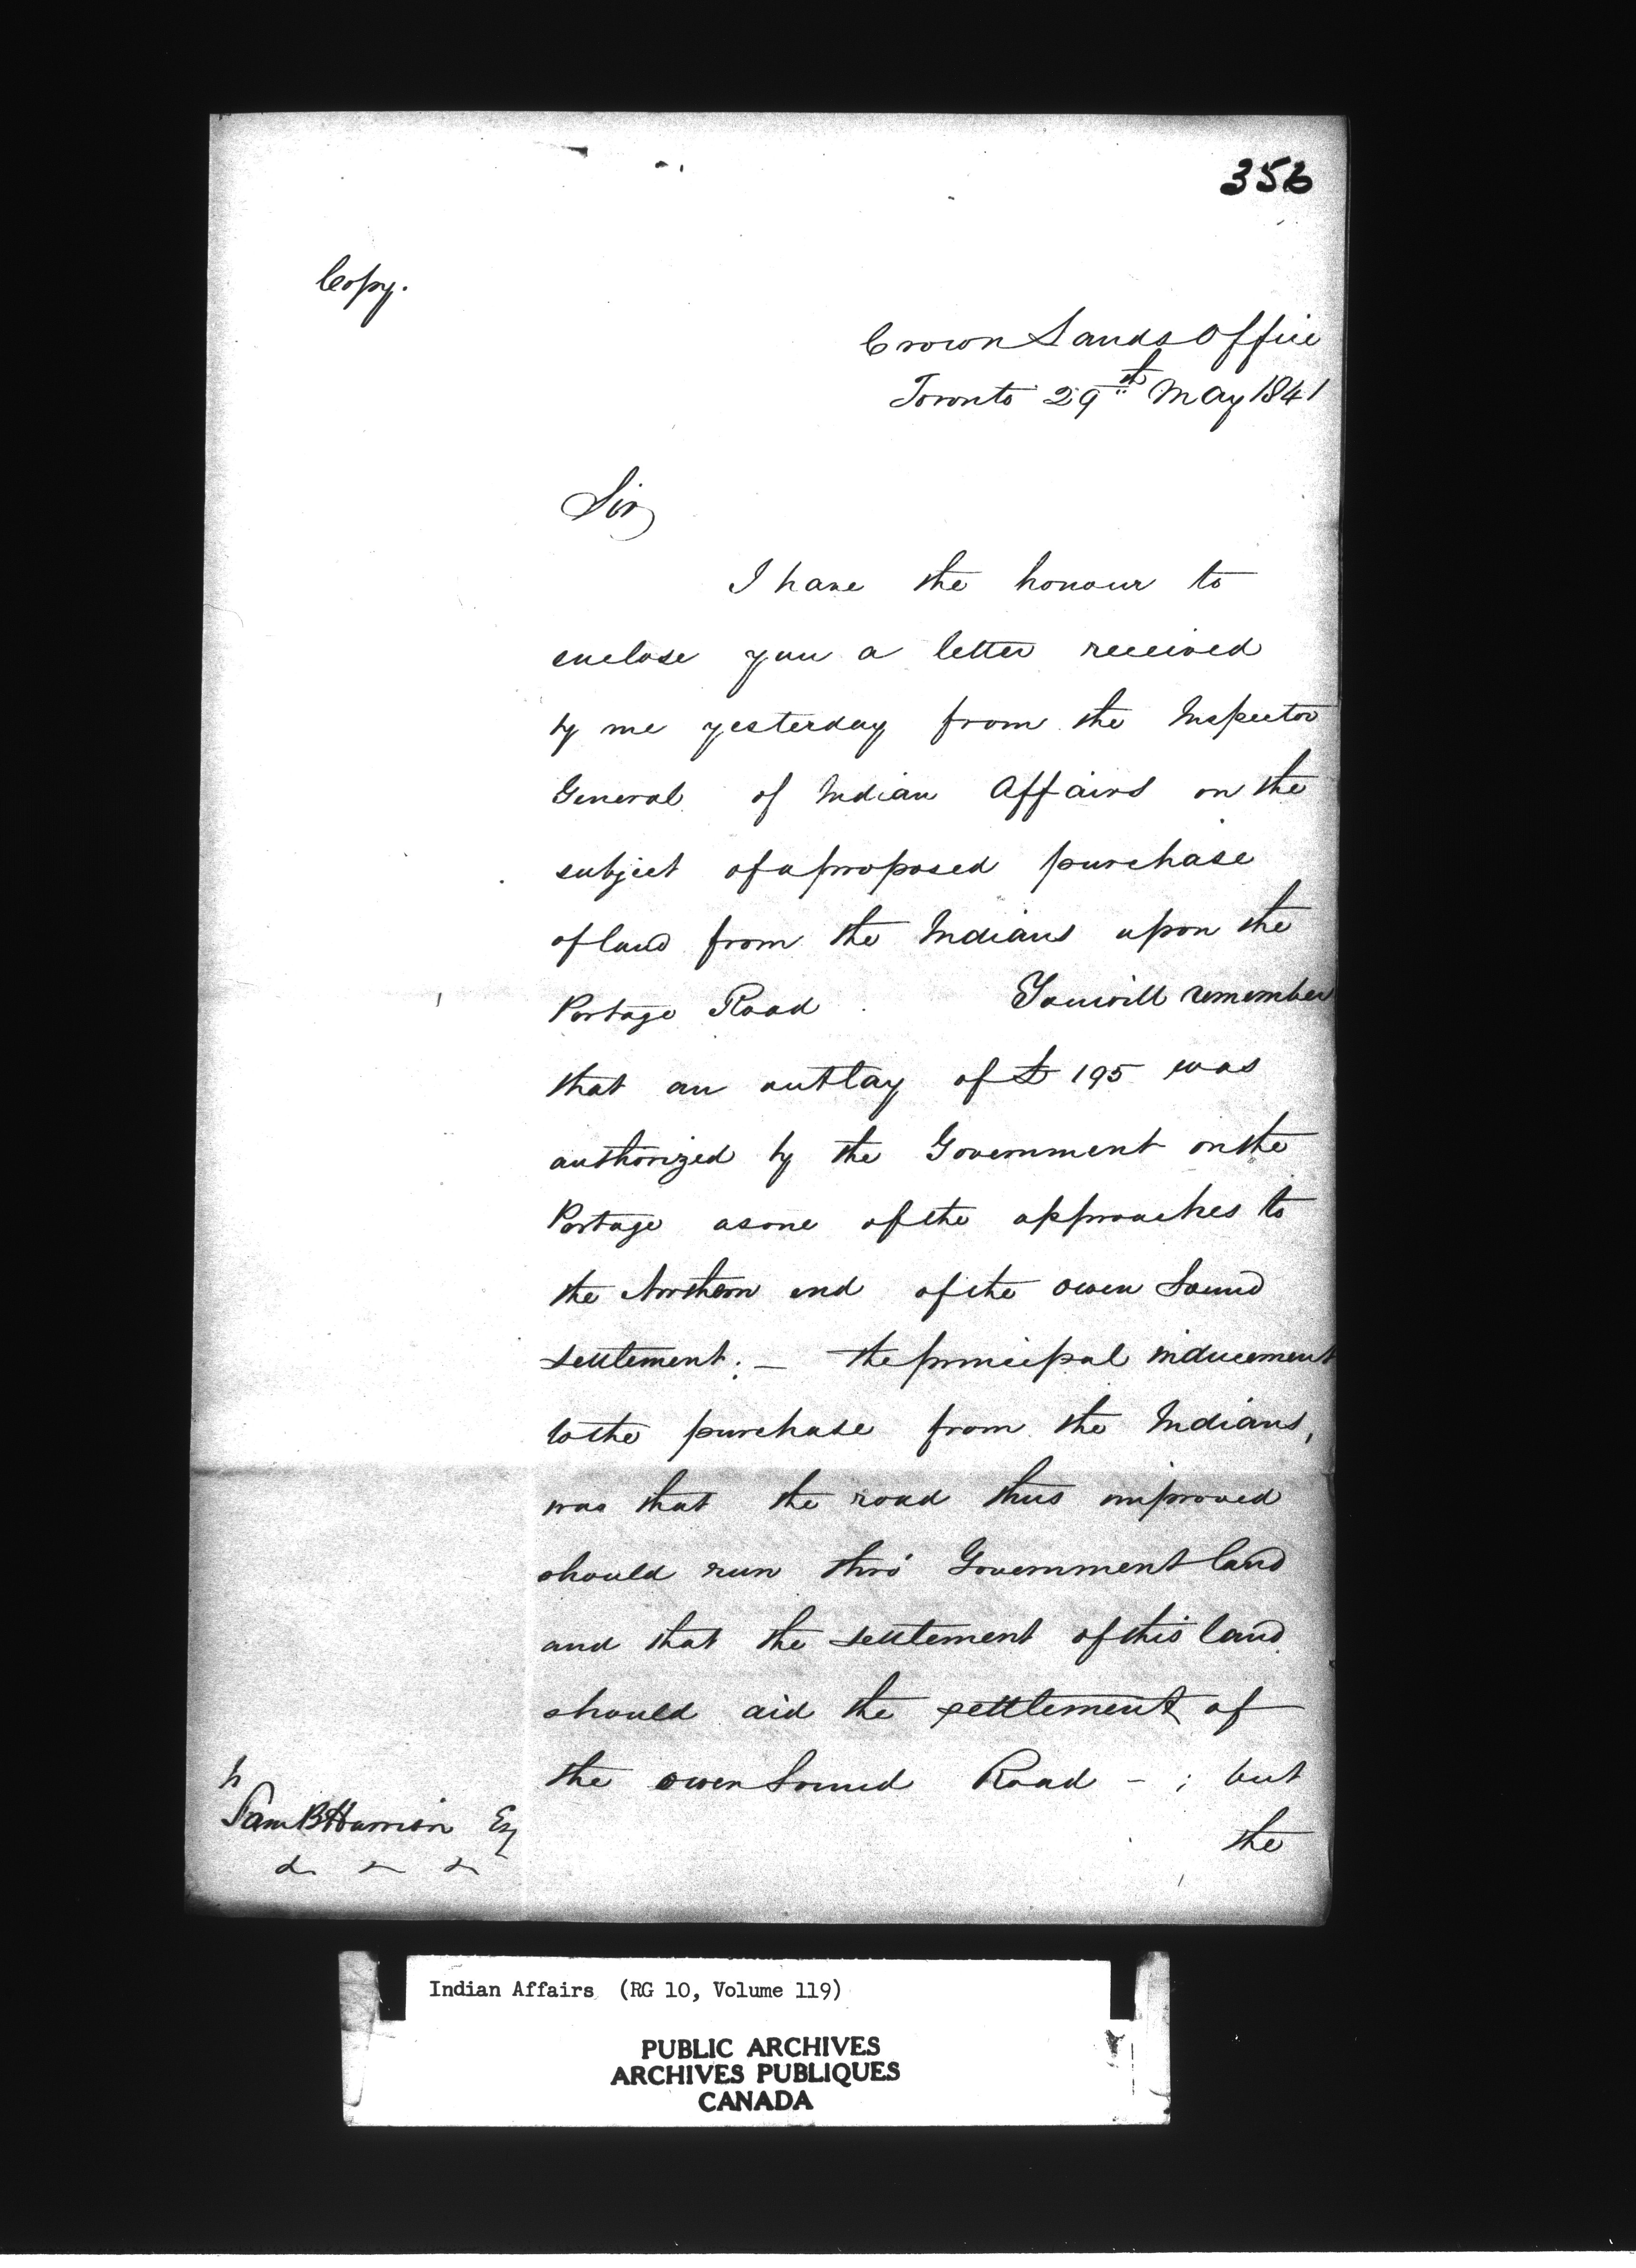 356
Copy.
Crown Lands Office
Toronto 29th May 1841
Sir,
I have the honour to
enclose you a letter received
by me yesterday from the Inspector
General of Indian Affairs on the
subject of a proposed purchase
of land from the Indians upon the
Portage Road. You will remember
that an outlay of £195 was
authorized by the Government on the
Portage as one of the approaches to
the Northern end of the Owen Sound
settlement; – the principal inducement
to the purchase from the Indians,
was that the road thus improved
should run thro' Government land
and that the settlement of this land
should aid the settlement of
the Owen Sound Road – ; but
the
Sam B Harrison Esq
Indian Affairs (RG 10, Volume 119)
PUBLIC ARCHIVES
ARCHIVES PUBLIQUES
CANADA